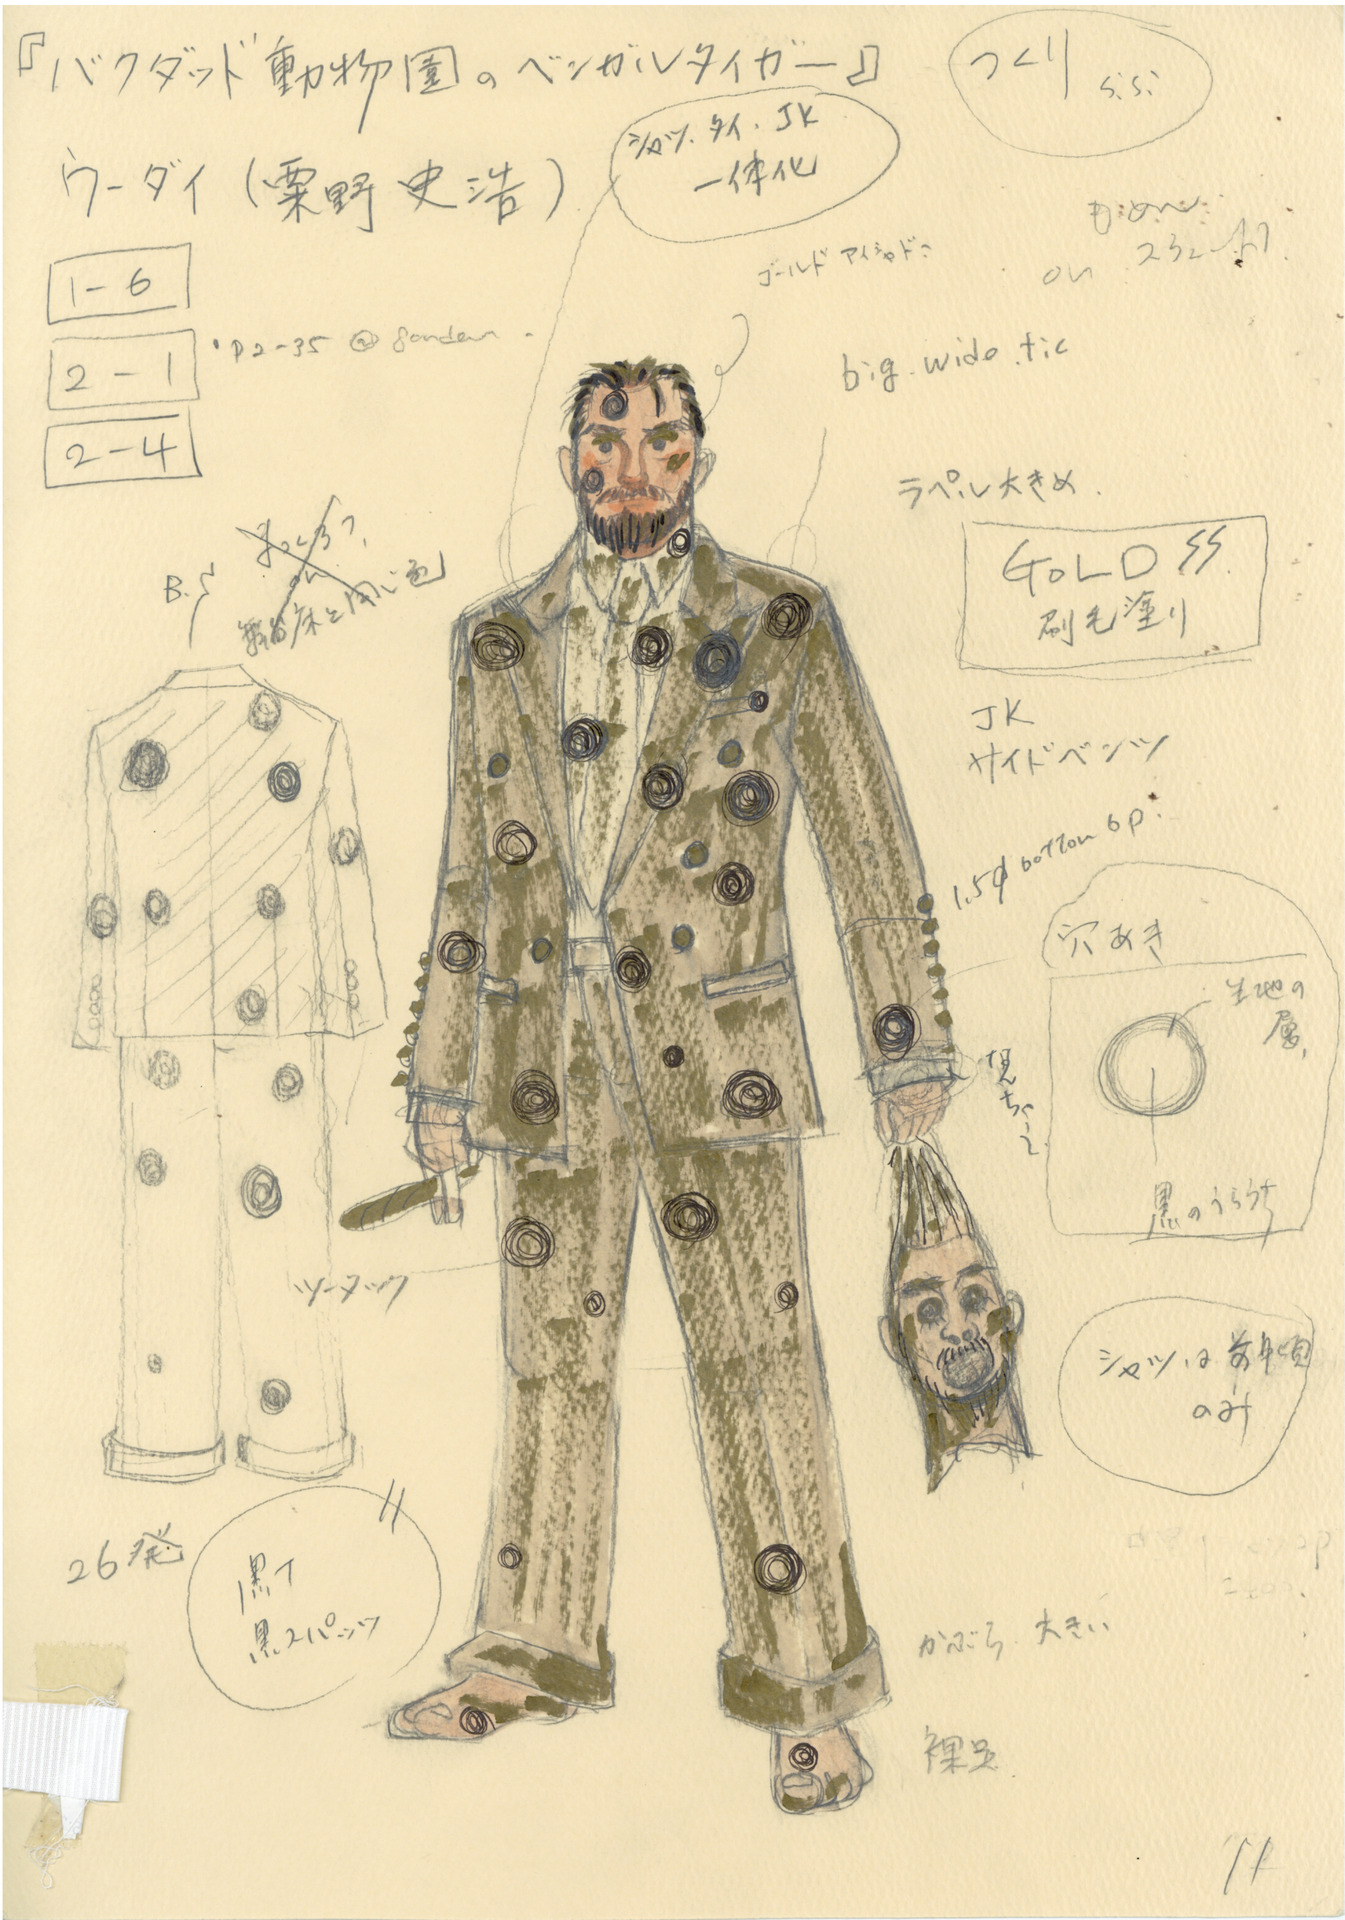 『バクダッド動物園のベンガルタイガー』
つくり
ウーダイ(粟野史浩)
シャツ.タイ.JK
一体化
ゴールド アイシャドー
1-6
2-1
・P2-35 @ garden
2-4
big.wide.tic
ラペル大きめ.
GOLD
刷毛塗り
B.S
と同じ色
JK
サイドベンツ
1.5φ botton 6p.
穴あき
生地の
層
黒のうらうち
ツータック
シャツは前身頃
のみ
26発
黒T
黒スパッツ
かぶら 大きい
裸足
11